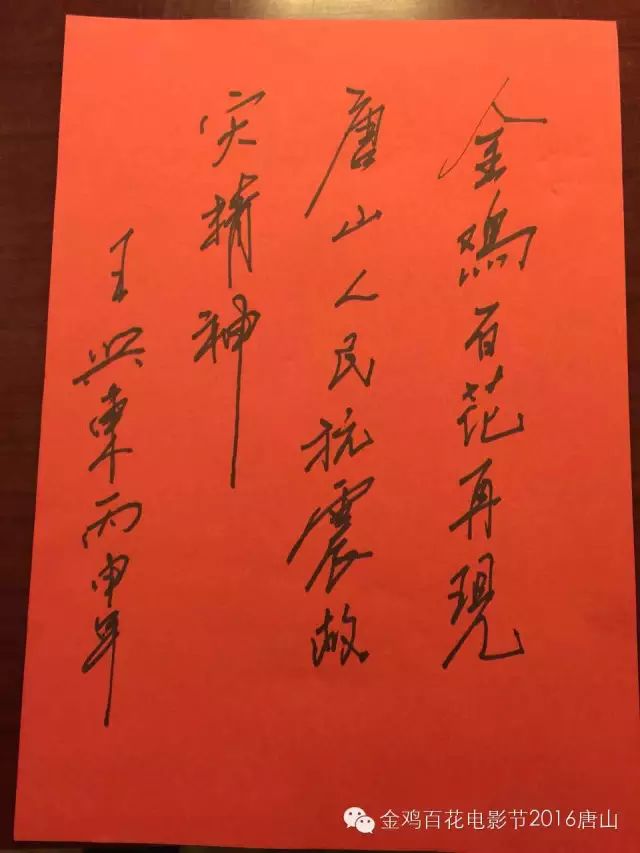 金鸡百花再現
唐山人民抗震救
灾精神
王兴東丙申年
金鸡百花电影节2016唐山